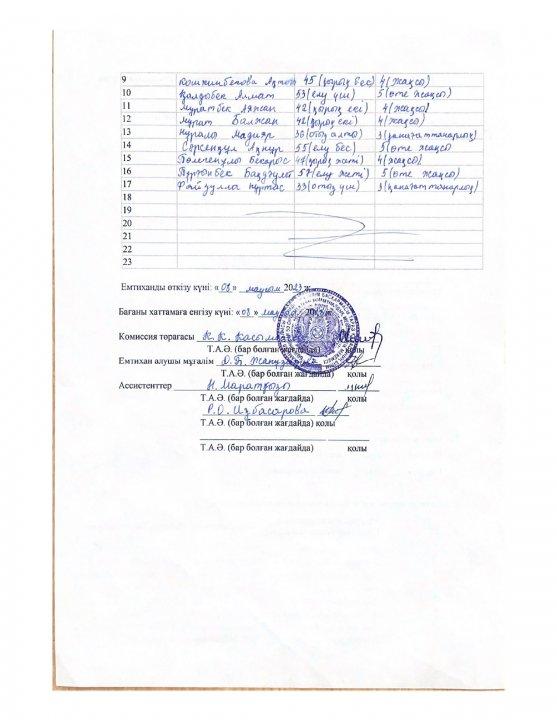 9 Кошкимбекова Ақтоты 45 (қырық бес) 4 (жақсы)
10 Қалдыбек Алмат 53 (елу үш) 5 (өте жақсы)
11 Мұратбек Аяжан 42 (қырық екі) 4 (жақсы)
12 Мұрат Балжан 42 (қырық екі) 4 (жақсы)
13 Нұралы Мадияр 36 (отыз алты) 3 (қанағаттанарлық)
14 Серсенқұл Ақнұр 55 (елу бес) 5 (өте жақсы
15 Төлегенұлы Бекарыс 47 (қырық жеті) 4 (жақсы)
16 57 (елу жеті) 5 (өте жақсы)
17 Файзулла Нұртас 33 (отыз үш) 3 (қанағаттанарлық)
18
19
20
21
22
23
Емтиханды өткізу күні: «08» маусым 2023 ж
Бағаны хаттамаға енгізу күні: «08» 2023 ж
Комиссия төрағасы К. К.
Т.А.Ә. (бар болған жағдайда) қолы
Емтихан алушы мұғалім
Т.А.Ә. (бар болған жағдайда) қолы
Ассистенттер Н. Маратқызы
Т.А.Ә. (бар болған жағдайда) қолы
Р.О. Избасарова
Т.А.Ә. (бар болған жағдайда) қолы
Т.А.Ә. (бар болған жағдайда) қолы